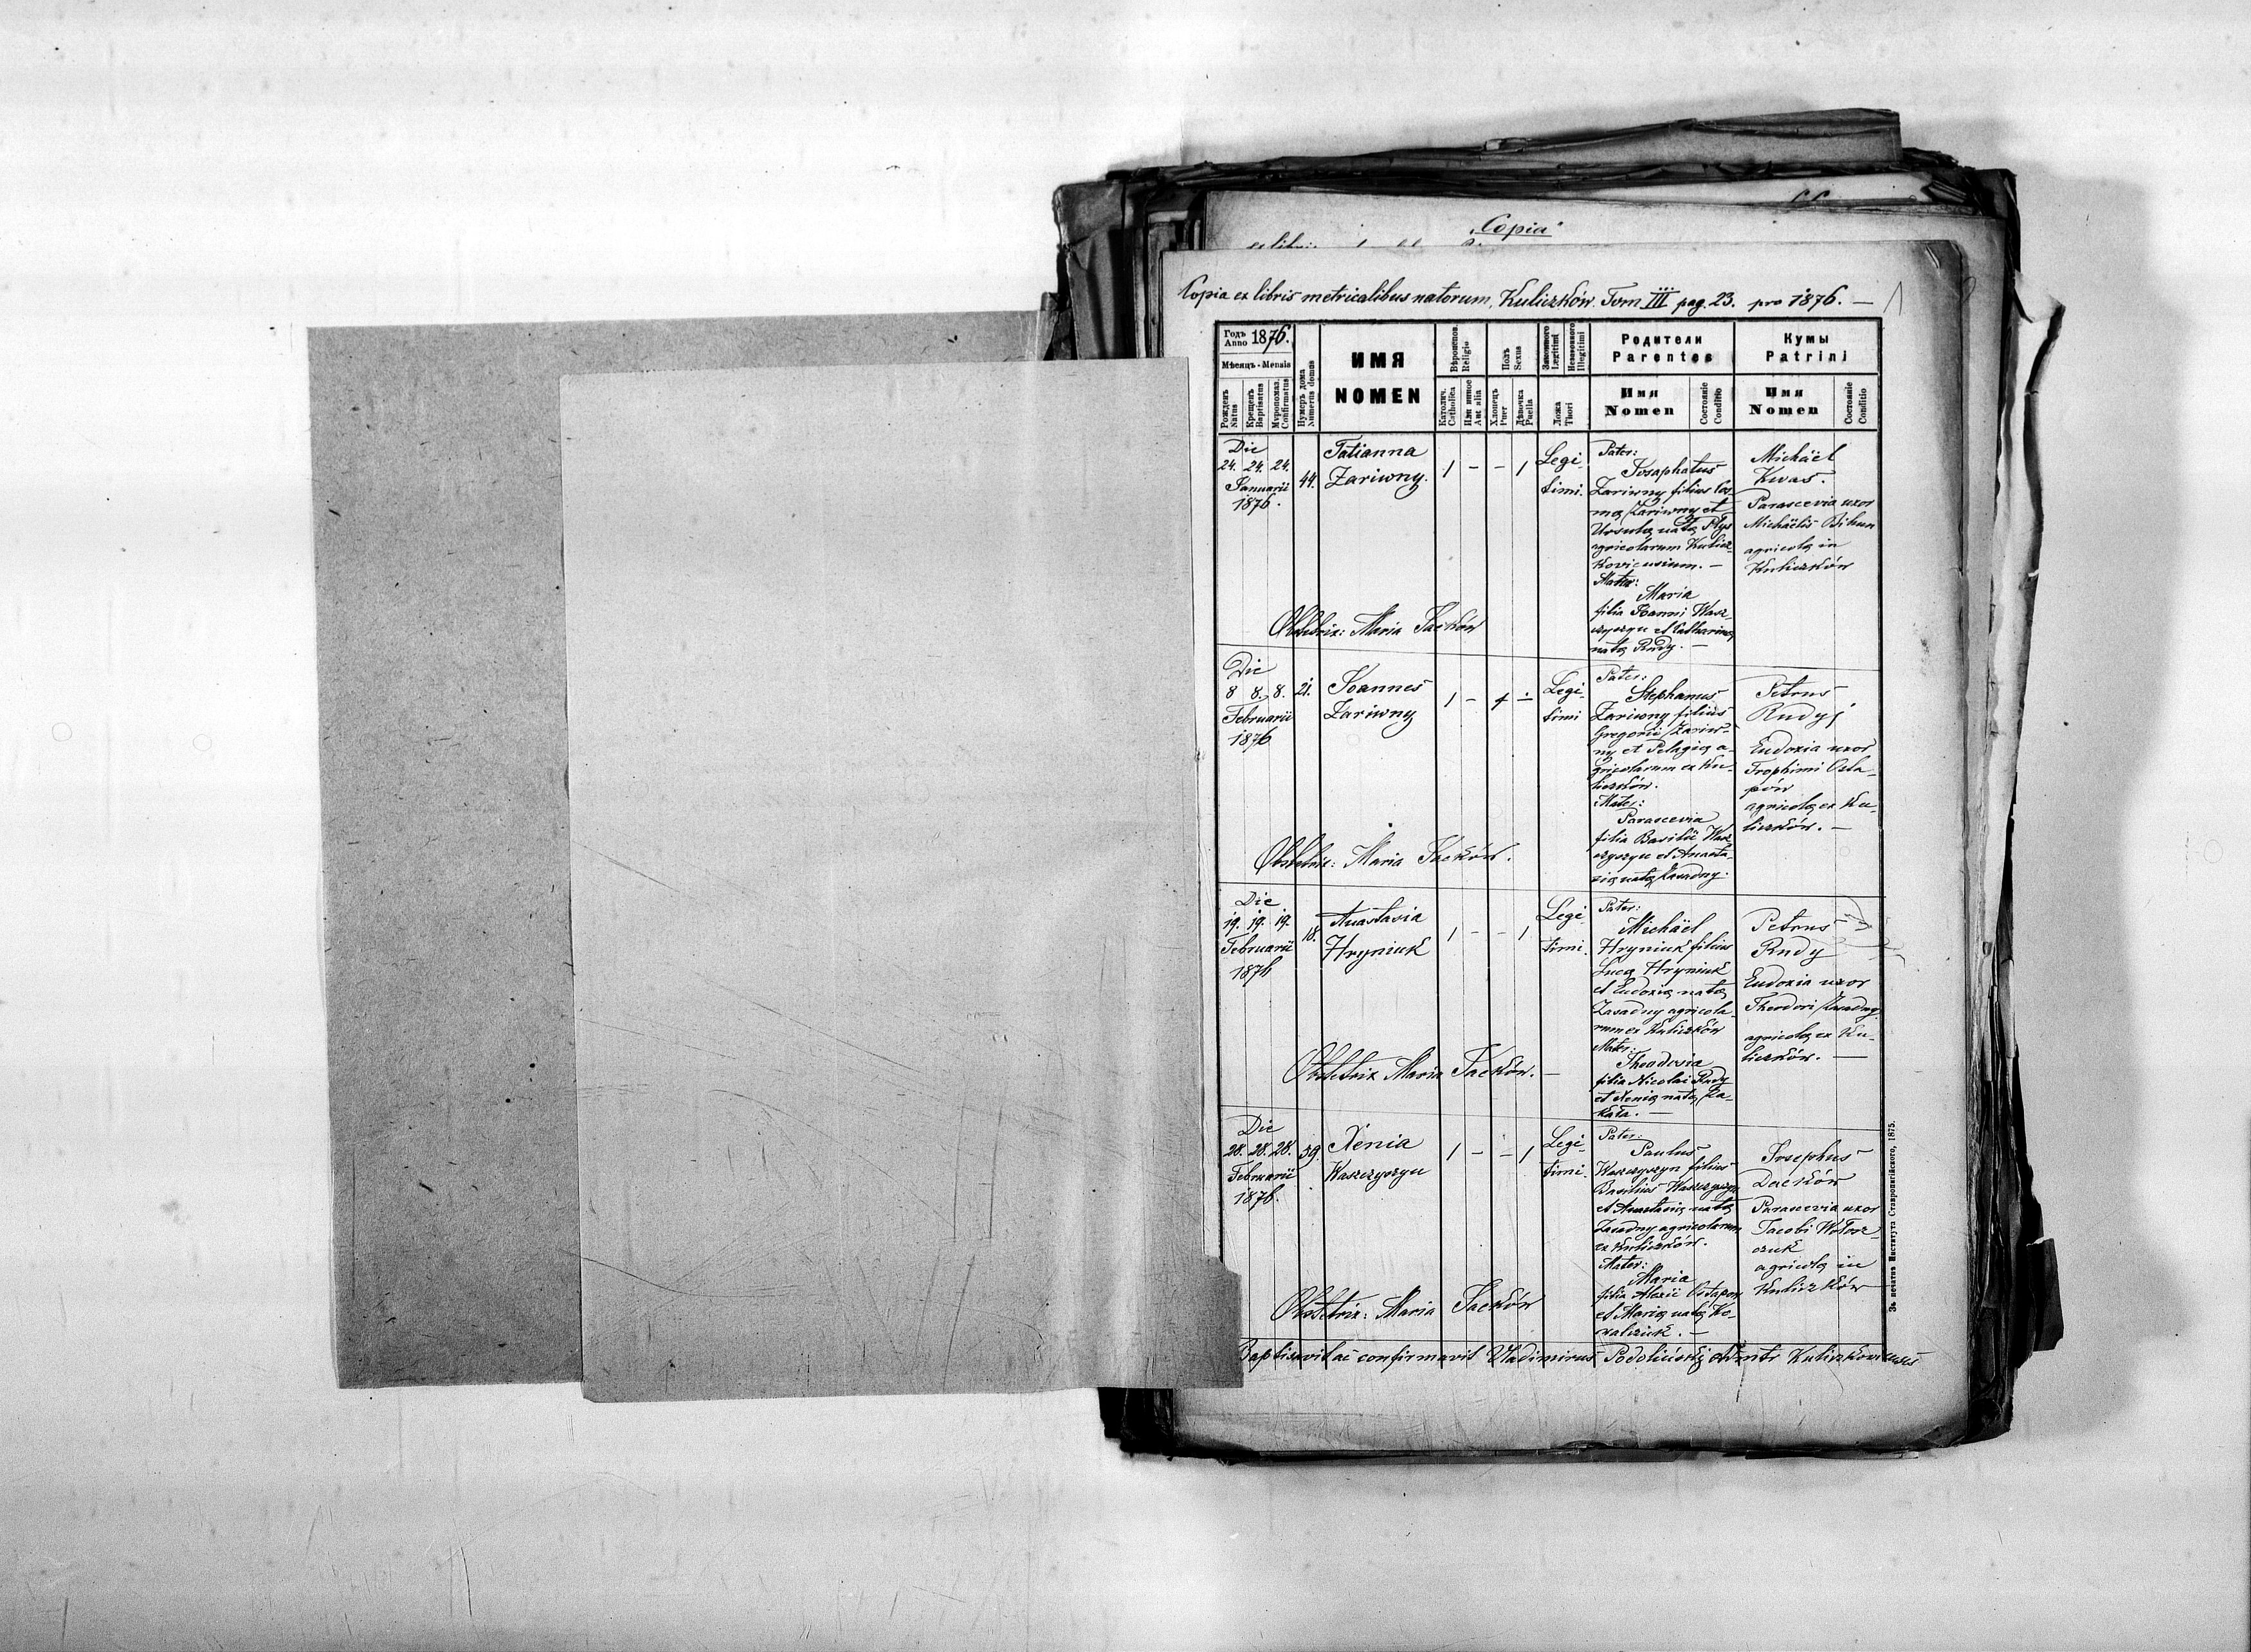 „Copia“
Copia ex libris metricalibus natorum, Kuliczków. Tom III pag. 23. pro 1876. —
Годъ Anno 1876.
Мѣсяцъ - Mensis
Рожденъ Natus
Крещенъ Baptisatus
Мѵропомаз. Confirmatus
Нумеръ дома Numerus domus
ИМЯ
NOMEN
Вѣроиспов. Religio
Католич. Catholica
Или инное Aut alia
Полъ Sexus
Хлопецъ Puer
Дѣвочка Puella
Законного Legitimi
Незаконного Illegitimi
Ложа Thori
Родители
Parentes
Имя
Nomen
Состояніе
Conditio
Кумы
Patrini
Имя
Nomen
Состояніе
Conditio
Die
24. 24. 24.
Januarii
1876.
44.
Tatianna
Zariwny.
1 - - 1
Legi-
timi.
Pater:
Josaphatus
Zariwny filius Cos-
mę Zariwny et
Ursulę natę
agricolarum Kulicz-
koviensium. —
Mater:
Maria
filia Joanni Wasz-
czyszyn et Catharinę
natę Rudy. —
Michäel
Kwas.
Parascevia uxor
Michäelis Bihun
agricolę in
Kuliczków
Obstetrix: Maria Jacków
Die
8 8. 8.
Februarii
1876
21.
Joannes
Zariwny
1 - 1 -
Legi-
timi
Pater:
Stephanus
Zariwny filius
Gregorii Zariw-
ny et Pelagię a-
gricolarum ex Ku-
liczków.
Mater:
Parascevia
filia Basilii Wasz-
czyszyn et Anasta-
zię natę Zasadny.
Petrus
Rudyj
Eudoxia uxor
Trophimi Osta-
pów
agricolę ex Ku-
liczków. —
Obstetrix: Maria Jacków.
Die
19. 19. 19.
Februarii
1876
18.
Anastasia
Hryniuk
1 - - 1
Legi-
timi.
Pater:
Michäel
Hryniuk filius
Lucę Hryniuk
et Eudoxię natę
Zasadny agricola-
rum ex Kuliczków
Mater:
Theodosia
filia Nicolai Rudy
et Xenię natę
Petrus
Rudy
Eudoxia uxor
Theodori Zasadny
agricolę ex Ku-
liczków. —
Obstetrix Maria Jacków. —
Die
28. 28. 28.
Februarii
1876.
59.
Xenia
Waszczyszyn
1 - - 1
Legi-
timi.
Pater:
Paulus
Waszczyszyn filius
Basilius Waszczyszyn
et Anastasię natę
Zasadny agricolarum
ex Kuliczków.
Mater:
Maria
filia Alexii Ostapow
et Marię natę Ko-
walczuk. —
Josephus
Dacków
Parascevia uxor
Jacobi Wołosz-
czuk
agricolę in
Kuliczków
Obstetrix: Maria Jacków
Baptisavit ac confirmavit Vladimirus Podoliński Kuliczkoviensis
Зъ печатнѣ Института Ставропигійского, 1875.